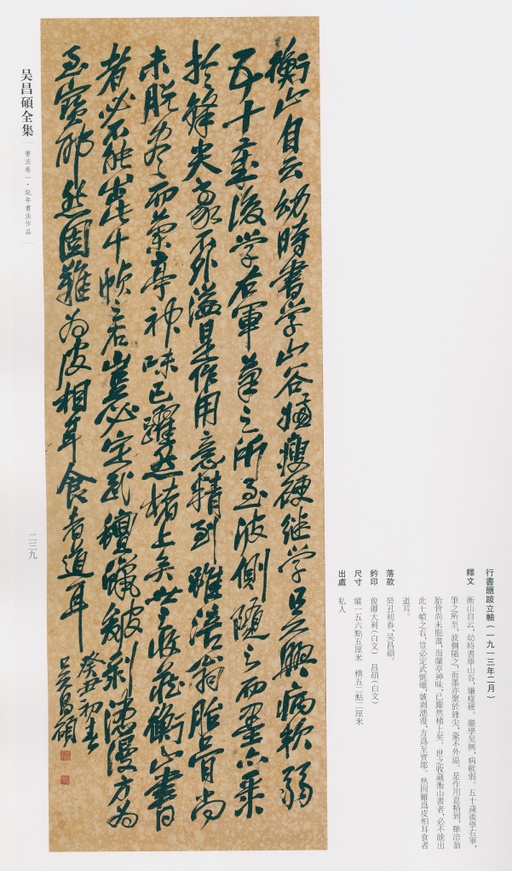 行書題跋立軸(一九一三年二月)
釋文 衡山自云，幼時書學山谷，嫌瘦硬。繼學吳興，病軟弱。五十歲後學右軍，
筆之所至，波側隨之，而墨亦聚於鋒尖，豪不外溢。是作用意精到，雖涪翁
胎骨尚未脫盡，而蘭亭神味，已躍然楮上矣。世之收藏衡山書者，必不能出
此十幀之右，豈必定武氈蠟，皴剥漶漫，方為至寶耶。然固難為皮相耳食者
道耳。
落款 癸丑初春，吳昌碩。
鈐印 俊卿大利(白文) 昌碩(白文)
尺寸 縱一五六點五厘米 橫五二點二厘米
出處 私人
衡山自云幼時書學山谷嫌瘦硬繼學吳興病軟弱
五十歲後學右軍筆之所至波側隨之而墨亦聚
於鋒尖豪不外溢是作用意精到雖涪翁胎骨尚
未脫盡而蘭亭神味已躍然楮上矣世之收藏衡山書
者必不能出此十幀之右豈必定武氈蠟皴剥漶漫方為
至寶耶然固難為皮相耳食者道耳
癸丑初春
吳昌碩
吴昌碩全集
書法卷一·紀年書法作品
二三九